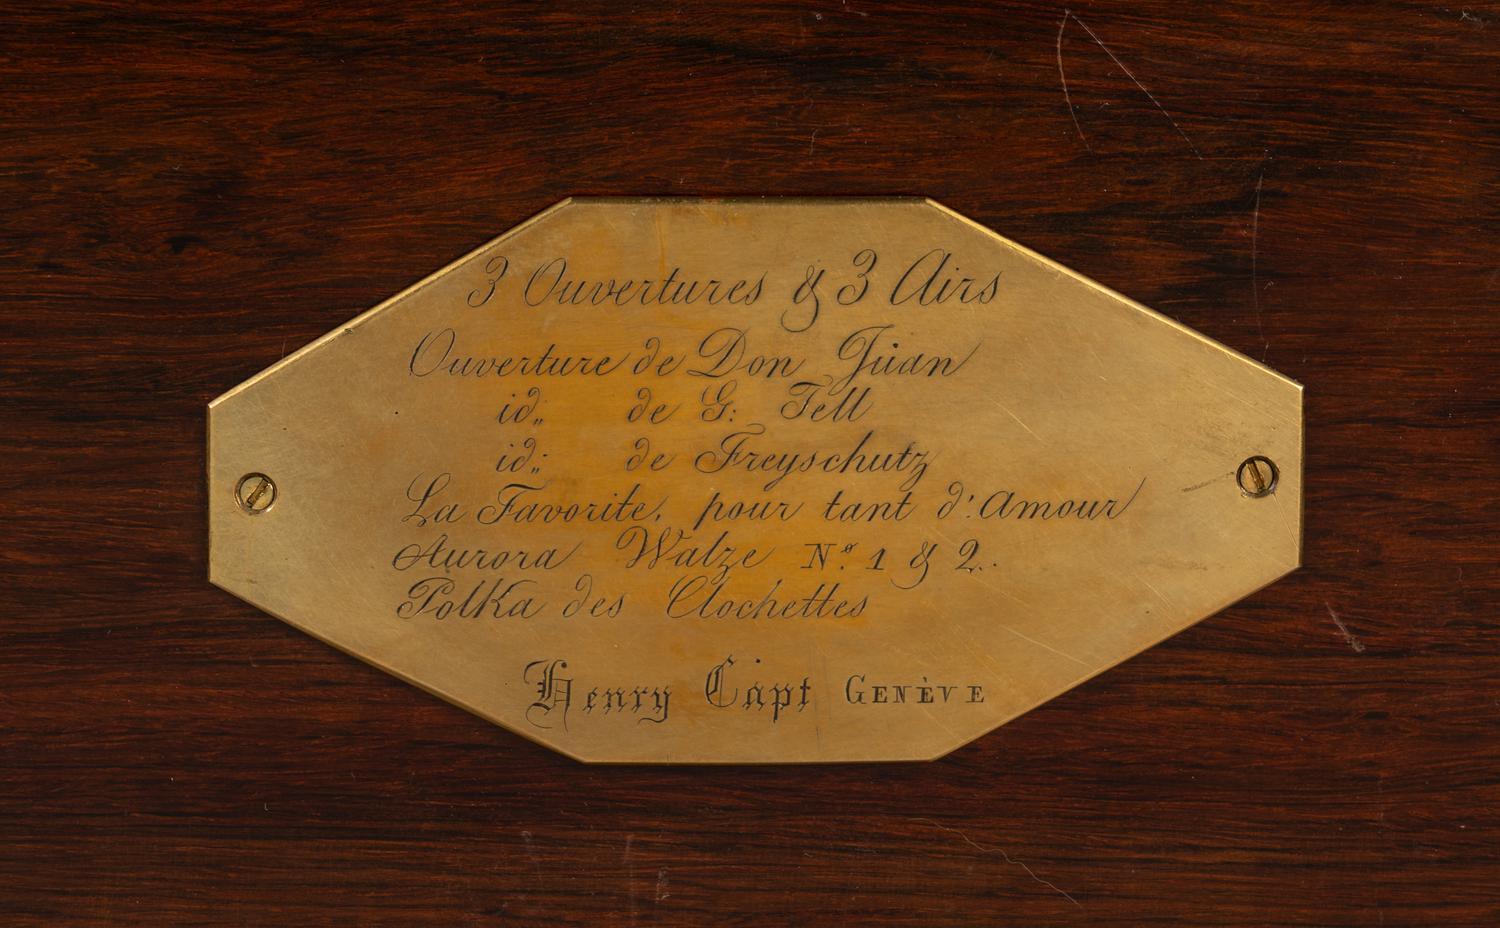 3 Ouvertures & 3 Airs
Ouverture de Don Jüan
id„ de G: Tell
id„ de Freyschutz
La Favorite, pour tant d'Amour
Aurora Walze Nº 1 & 2..
Polka des Clochettes
Henry Capt GENÈVE